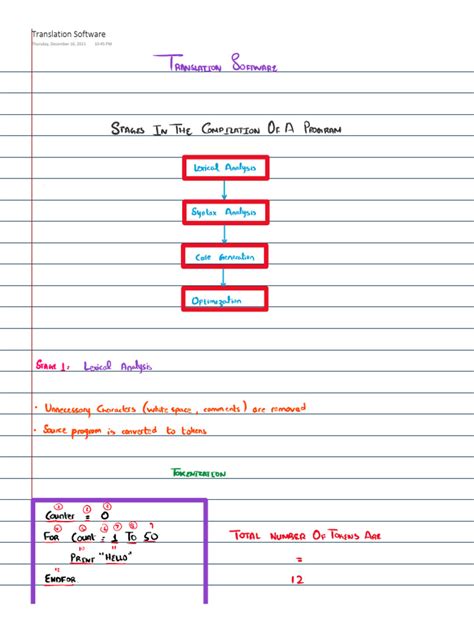 Translation Software
Thursday, December 16, 2021 10:45 PM
TRANSLATION SOFTWARE
STAGES IN THE COMPILATION OF A PROGRAM
Lexical Analysis
Syntax Analysis
Code Generation
Optimization
STAGE 1: Lexical Analysis
• Unnecessary Characters (white space, comments) are removed
• Source program is converted to tokens
TOKENIZATION
Counter = 0
FOR Count = 1 TO 50
PRINT "HELLO"
ENDFOR
TOTAL NUMBER OF TOKENS ARE
=
12